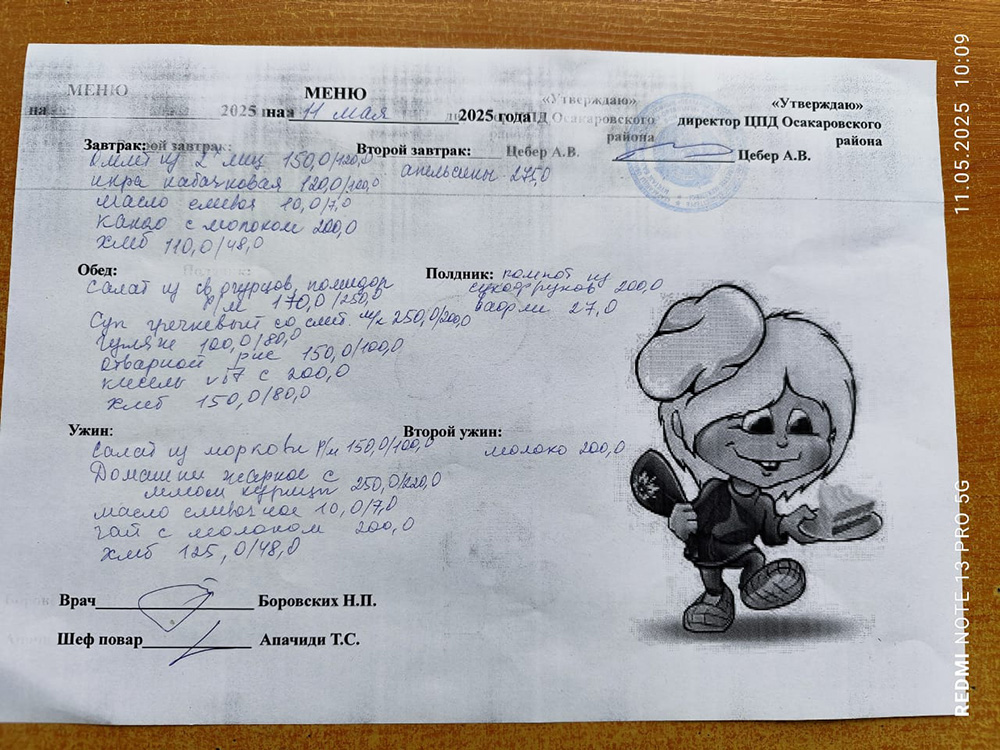 МЕНЮ
МЕНЮ
на 2025 г на 11 мая 2025 года
«Утверждаю»
«Утверждаю»
ЦПД Осакаровского
района
директор ЦПД Осакаровского
района
Цебер А.В.
Цебер А.В.
Завтрак:
Омлет из 2х яиц 150,0/120,0
икра кабачковая 120,0/100,0
масло сливоч 10,0/7,0
какао с молоком 200,0
хлеб 110,0/48,0
Второй завтрак:
апельсины 275,0
Обед:
Салат из св огурцов, помидор
р/м 170,0/250,0
Суп гречневый со смет. м/к 250,0/200,0
Гуляш 100,0/80,0
отварной рис 150,0/100,0
кисель с 200,0
хлеб 150,0/80,0
Полдник: компот из
сухофруков 200,0
вафли 27,0
Ужин:
Салат из моркови р/м 150,0/100,0
Домашн жаркое с
мясом курицы 250,0/220,0
масло сливочное 10,0/7,0
чай с молоком 200,0
хлеб 125,0/48,0
Второй ужин:
молоко 200,0
Врач Боровских Н.П.
Шеф повар Апачиди Т.С.
11.05.2025 10:09
REDMI NOTE 13 PRO 5G